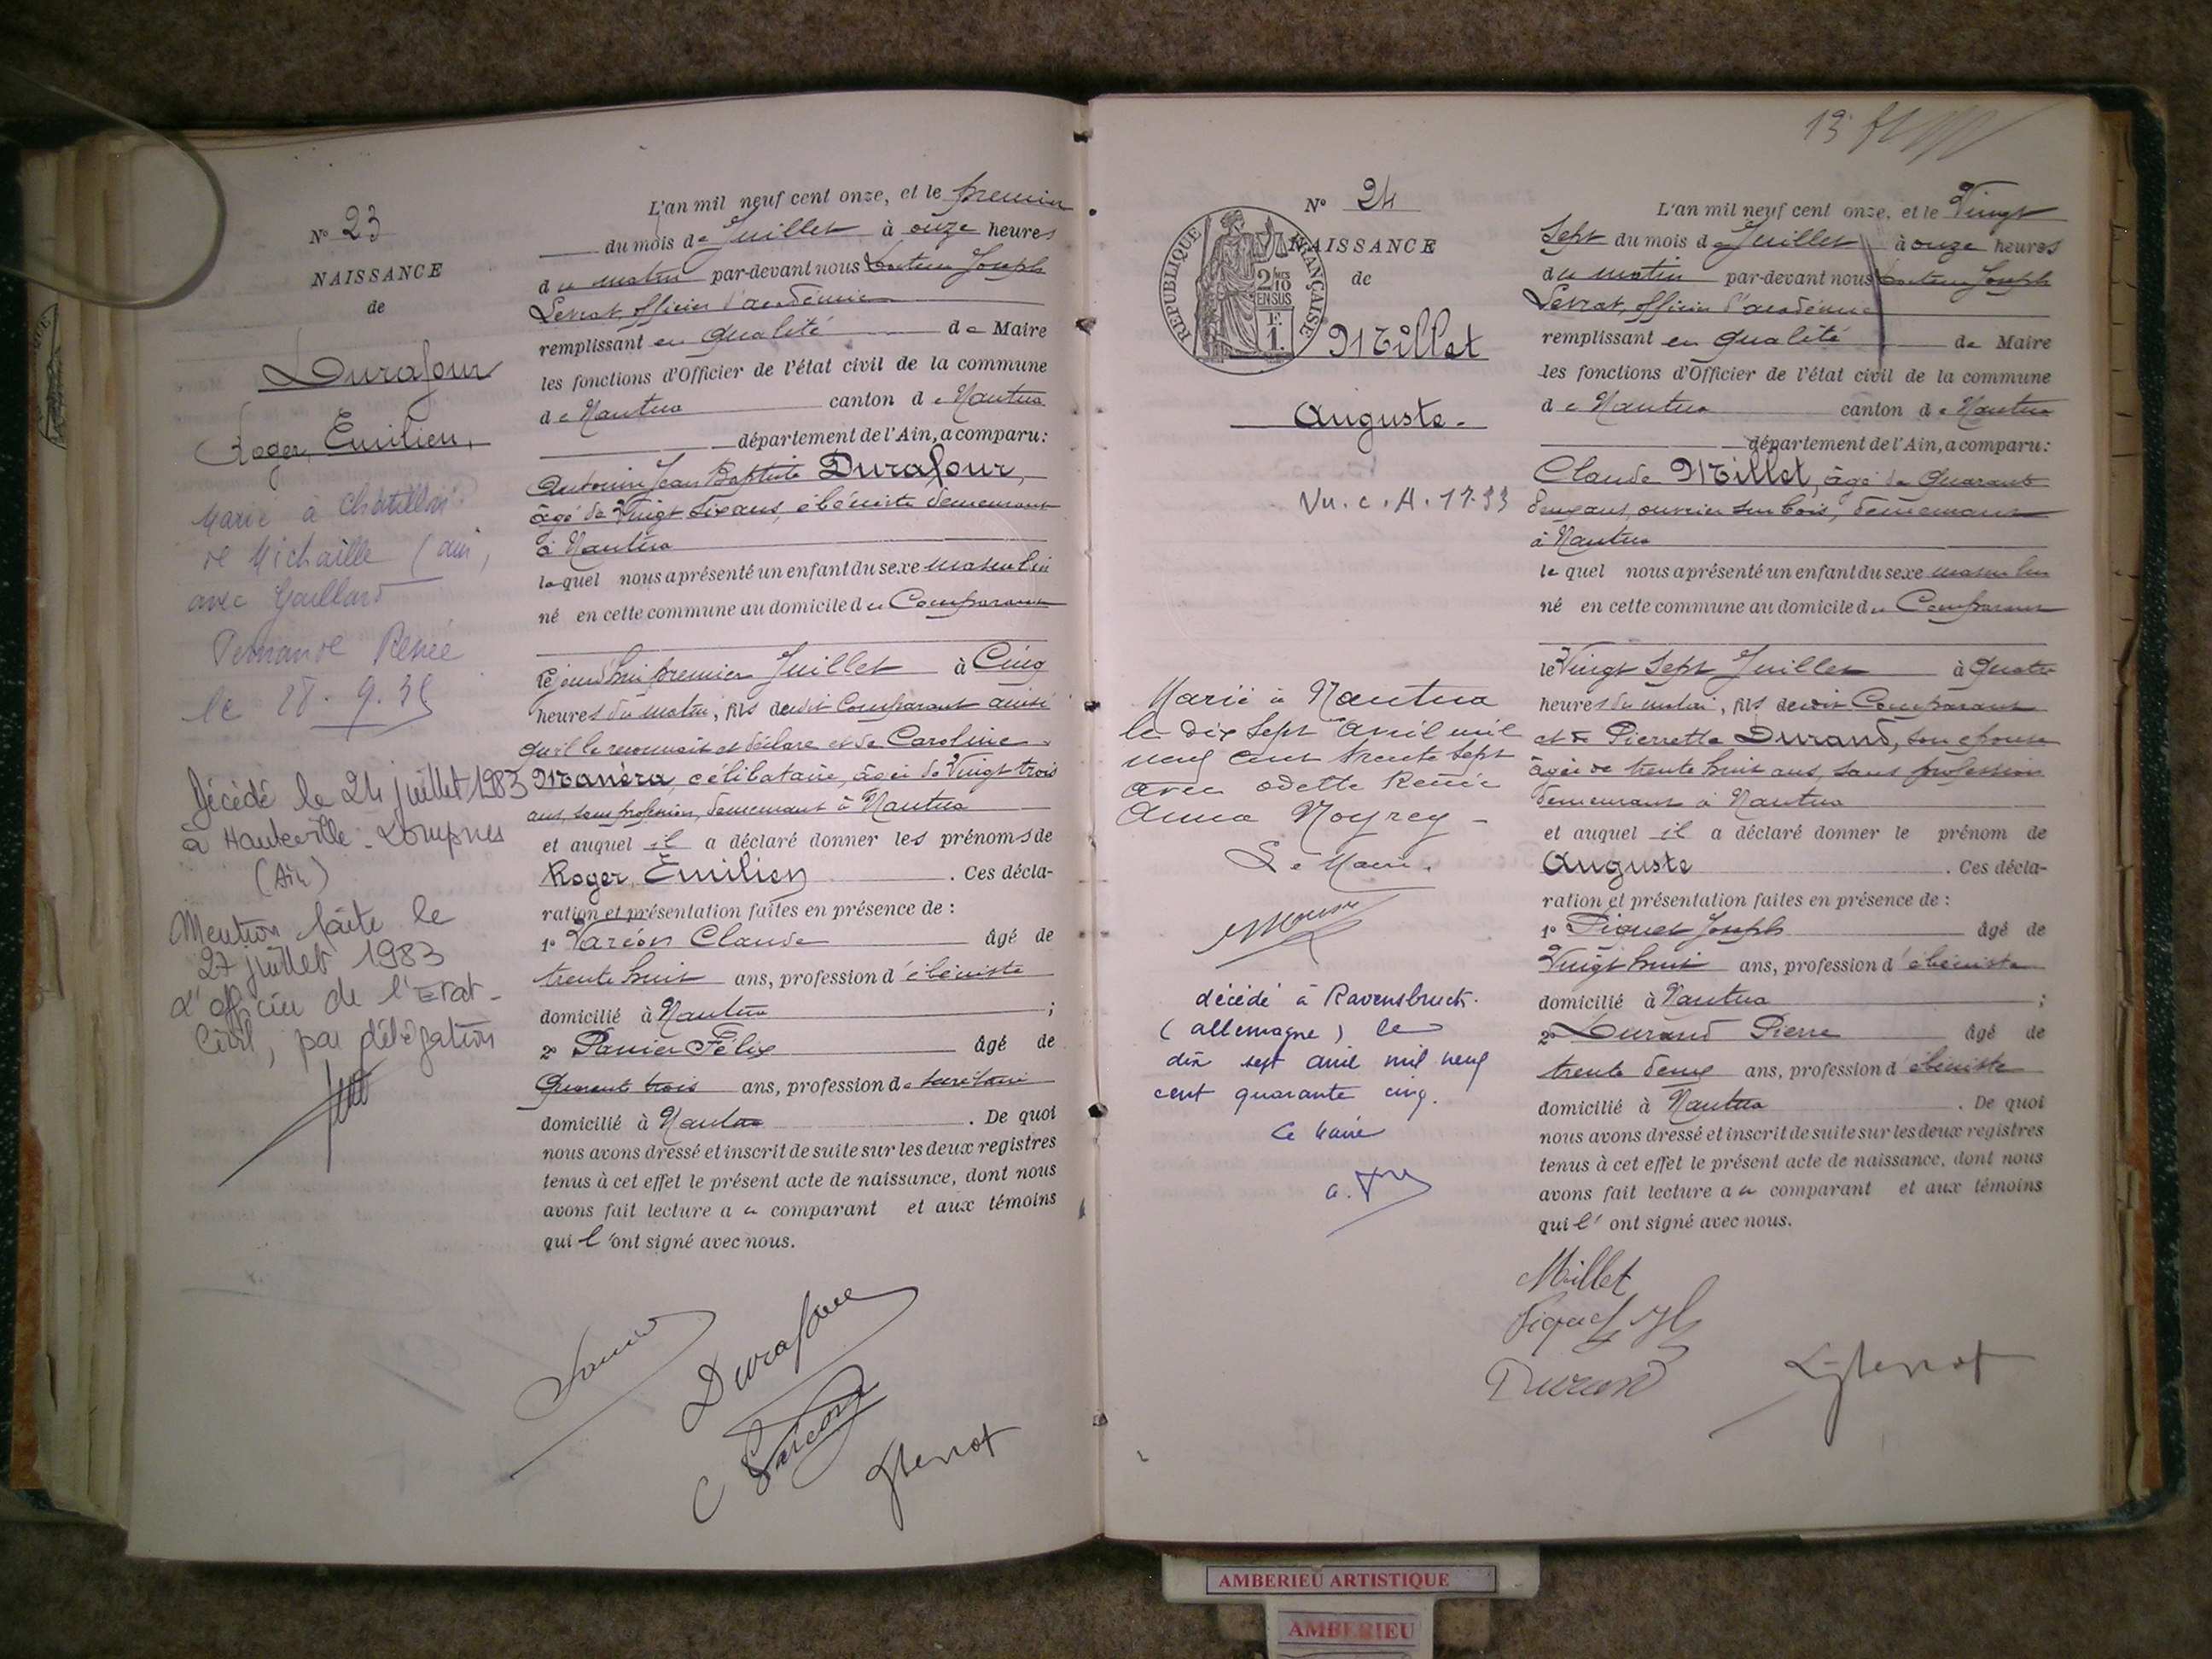 N° 23
NAISSANCE
de
Durafour
Roger, Emilien,
Marié à Chatillon
de Michaille (ain,
avec Gaillard
Fernande Renée
le 28. 9. 35
Décédé le 24 juillet 1983
à Hauteville-Lompnes
(Ain)
Mention faite le
27 juillet 1983
L'officier de l'Etat-
Civil, par délégation
L'an mil neuf cent onze, et le premier
du mois de Juillet à onze heures
du matin par-devant nous Docteur Joseph
Levrat, officier d'académie
remplissant en qualité de Maire
les fonctions d'Officier de l'état civil de la commune
de Nantua canton de Nantua
département de l'Ain, a comparu :
Antonin Jean Baptiste Durafour,
âgé de Vingt six ans, ébéniste demeurant
à Nantua
lequel nous a présenté un enfant du sexe masculin
né en cette commune au domicile du Comparant
le jourd'hui premier Juillet à Cinq
heures du matin, fils dudit Comparant ainsi
qu'il le reconnait et déclare et de Caroline
Manéra, célibataire, âgée de Vingt trois
ans, sans profession, demeurant à Nantua
et auquel il a déclaré donner les prénoms de
Roger, Emilien . Ces décla-
ration et présentation faites en présence de :
1° Varéon Claude âgé de
trente huit ans, profession d'ébéniste
domicilié à Nantua ;
2° Panier Félix âgé de
Quarante trois ans, profession de secrétaire
domicilié à Nantua . De quoi
nous avons dressé et inscrit de suite sur les deux registres
tenus à cet effet le présent acte de naissance, dont nous
avons fait lecture au comparant et aux témoins
qui l'ont signé avec nous.
Durafour
Levrat
13
N° 24
NAISSANCE
de
REPUBLIQUE FRANÇAISE
2/10 EN SUS
1 F.
Millet
Auguste.
Vu. c. A. 17.33
Marié à Nantua
le dix sept avril mil
neuf cent trente sept
avec Odette Renée
Anna Noyrey -
Le Maire.
décédé à Ravensbruck.
(allemagne) le
dix sept avril mil neuf
cent quarante cinq.
Le Maire
L'an mil neuf cent onze, et le Vingt
Sept du mois de Juillet à onze heures
du matin par-devant nous Docteur Joseph
Levrat, officier d'académie
remplissant en qualité de Maire
les fonctions d'Officier de l'état civil de la commune
de Nantua canton de Nantua
département de l'Ain, a comparu :
Claude Millet, âgé de Quarante
deux ans, ouvrier sur bois, demeurant
à Nantua
lequel nous a présenté un enfant du sexe masculin
né en cette commune au domicile du Comparant
le Vingt Sept Juillet à Quatre
heures du matin, fils dudit Comparant
et de Pierrette Durand, son épouse
âgée de trente huit ans, sans profession
demeurant à Nantua
et auquel il a déclaré donner le prénom de
Auguste . Ces décla-
ration et présentation faites en présence de :
1° Piquet Joseph âgé de
Vingt huit ans, profession d'ébéniste
domicilié à Nantua ;
2° Durand Pierre âgé de
trente deux ans, profession d'ébéniste
domicilié à Nantua . De quoi
nous avons dressé et inscrit de suite sur les deux registres
tenus à cet effet le présent acte de naissance, dont nous
avons fait lecture au comparant et aux témoins
qui l'ont signé avec nous.
Millet
Piquet
Durand
Levrat
AMBERIEU ARTISTIQUE
AMBERIEU